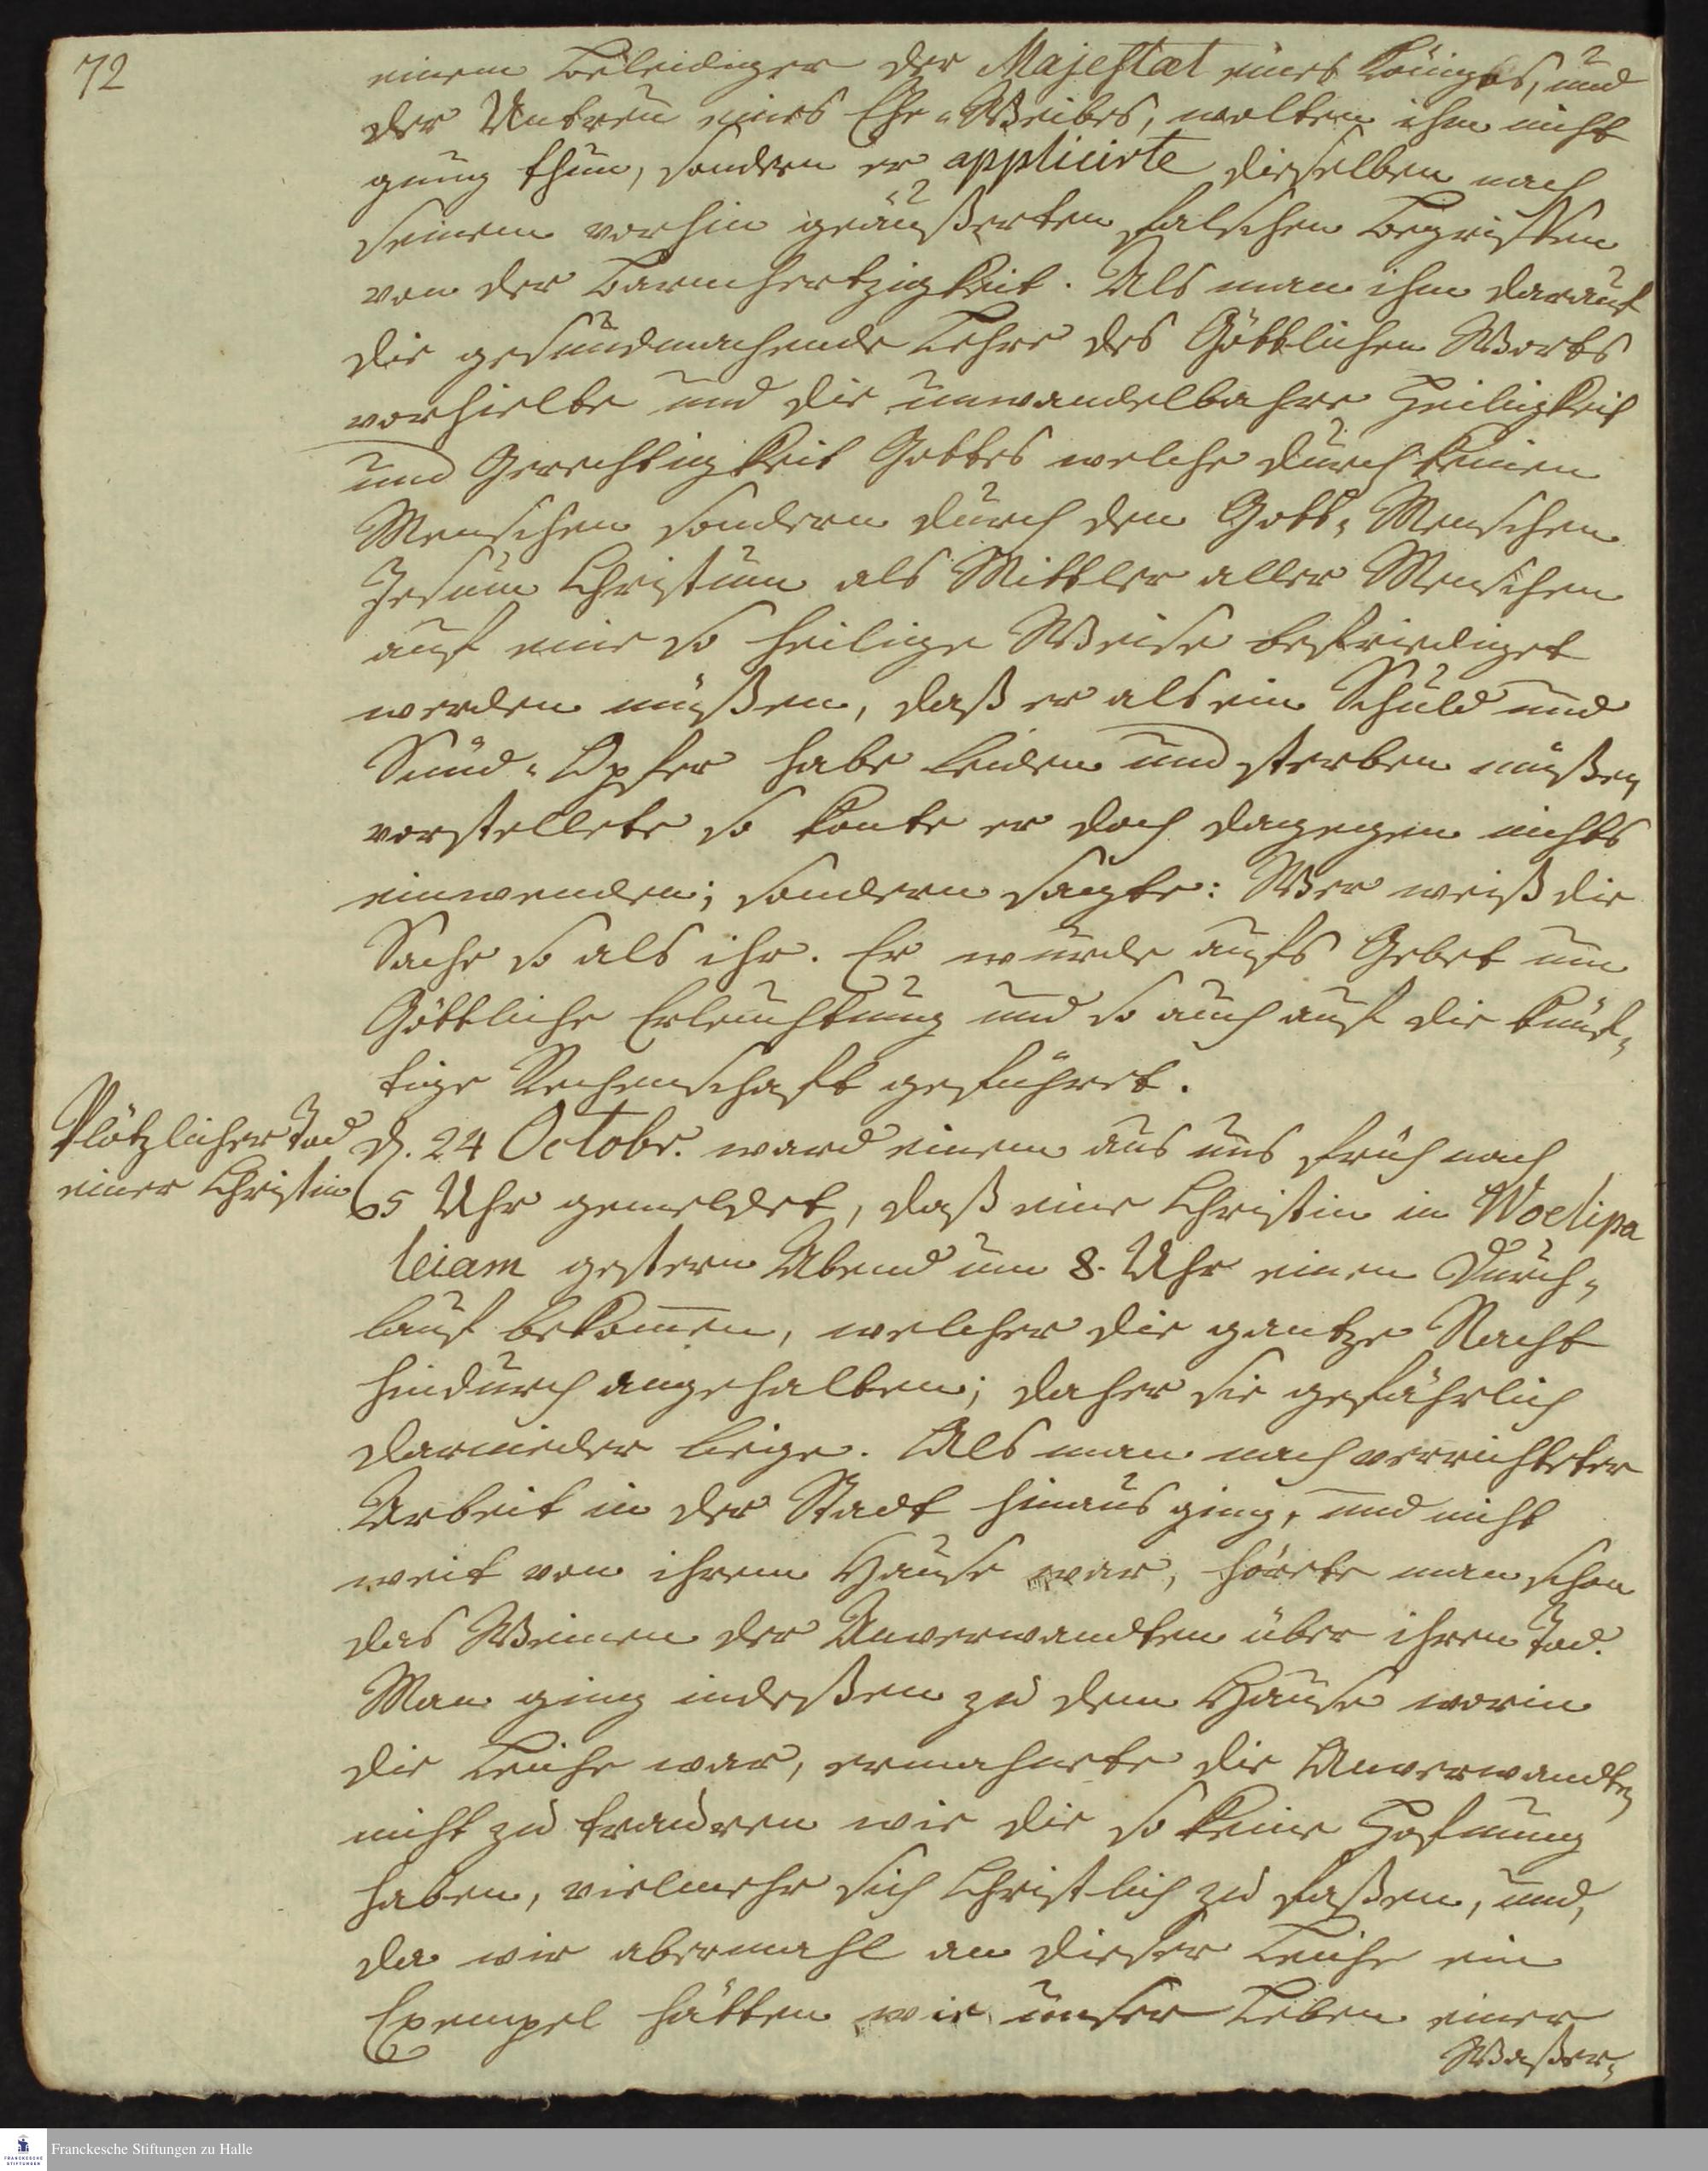 72
einem Beleidiger der Majestæt eines Königes, und
der Untreu eines Ehe-Weibes, wolten ihm nicht
gnug thun, sondern er applicirte dieselben nach
seinem vorhin geäußerten falschen Begriffen
von der Barmhertzigkeit. Als man ihm darauf
die gesundmachende Lehre des Göttlichen Worts
vorhielte und die unwandelbahre Heiligkeit
und Gerechtigkeit Gottes welche durch keinen
Menschen sondern durch den Gott-Menschen
Jesum Christum als Mittler aller Menschen
auf eine so heilige Weise befriediget
werden müßen, daß er als ein Schuld und
Sünd-Opfer habe leiden und sterben müßen
vorstellete so konte er doch dagegen nichts
einwenden; sondern sagte: Wer weiß die
Sache so als ihr. Er wurde aufs Gebet um
Göttliche Erleuchtung und so auch auf die künf-
tige Rechenschaft geführet.
Plötzlicher Tod
einer Christin
d. 24 Octobr. ward einem aus uns früh nach
5 Uhr gemeldet, daß eine Christin in Woelipa
leiam gestern Abend um 8. Uhr einen Durch-
lauf bekommen, welcher die gantze Nacht
hindurch angehalten; daher sie gefährlich
darnieder liege. Als man nach verrichteter
Arbeit in der Stadt hinaus ging, und nicht
weit von ihrem Hause war, hörete man schon
das Weinen der Anverwandten über ihren Tod.
Man ging indeßen zu dem Hause worin
die Leiche war, ermahnete die Anverwandten
nicht zu trauren wie die so keine Hofnung
haben, vielmehr sich Christlich zu faßen, und,
da wir abermahl an dieser Leiche ein
Exempel hätten wie unser Leben einer
Waßer-
Franckesche Stiftungen zu Halle
FRANCKESCHE
STIFTUNGEN